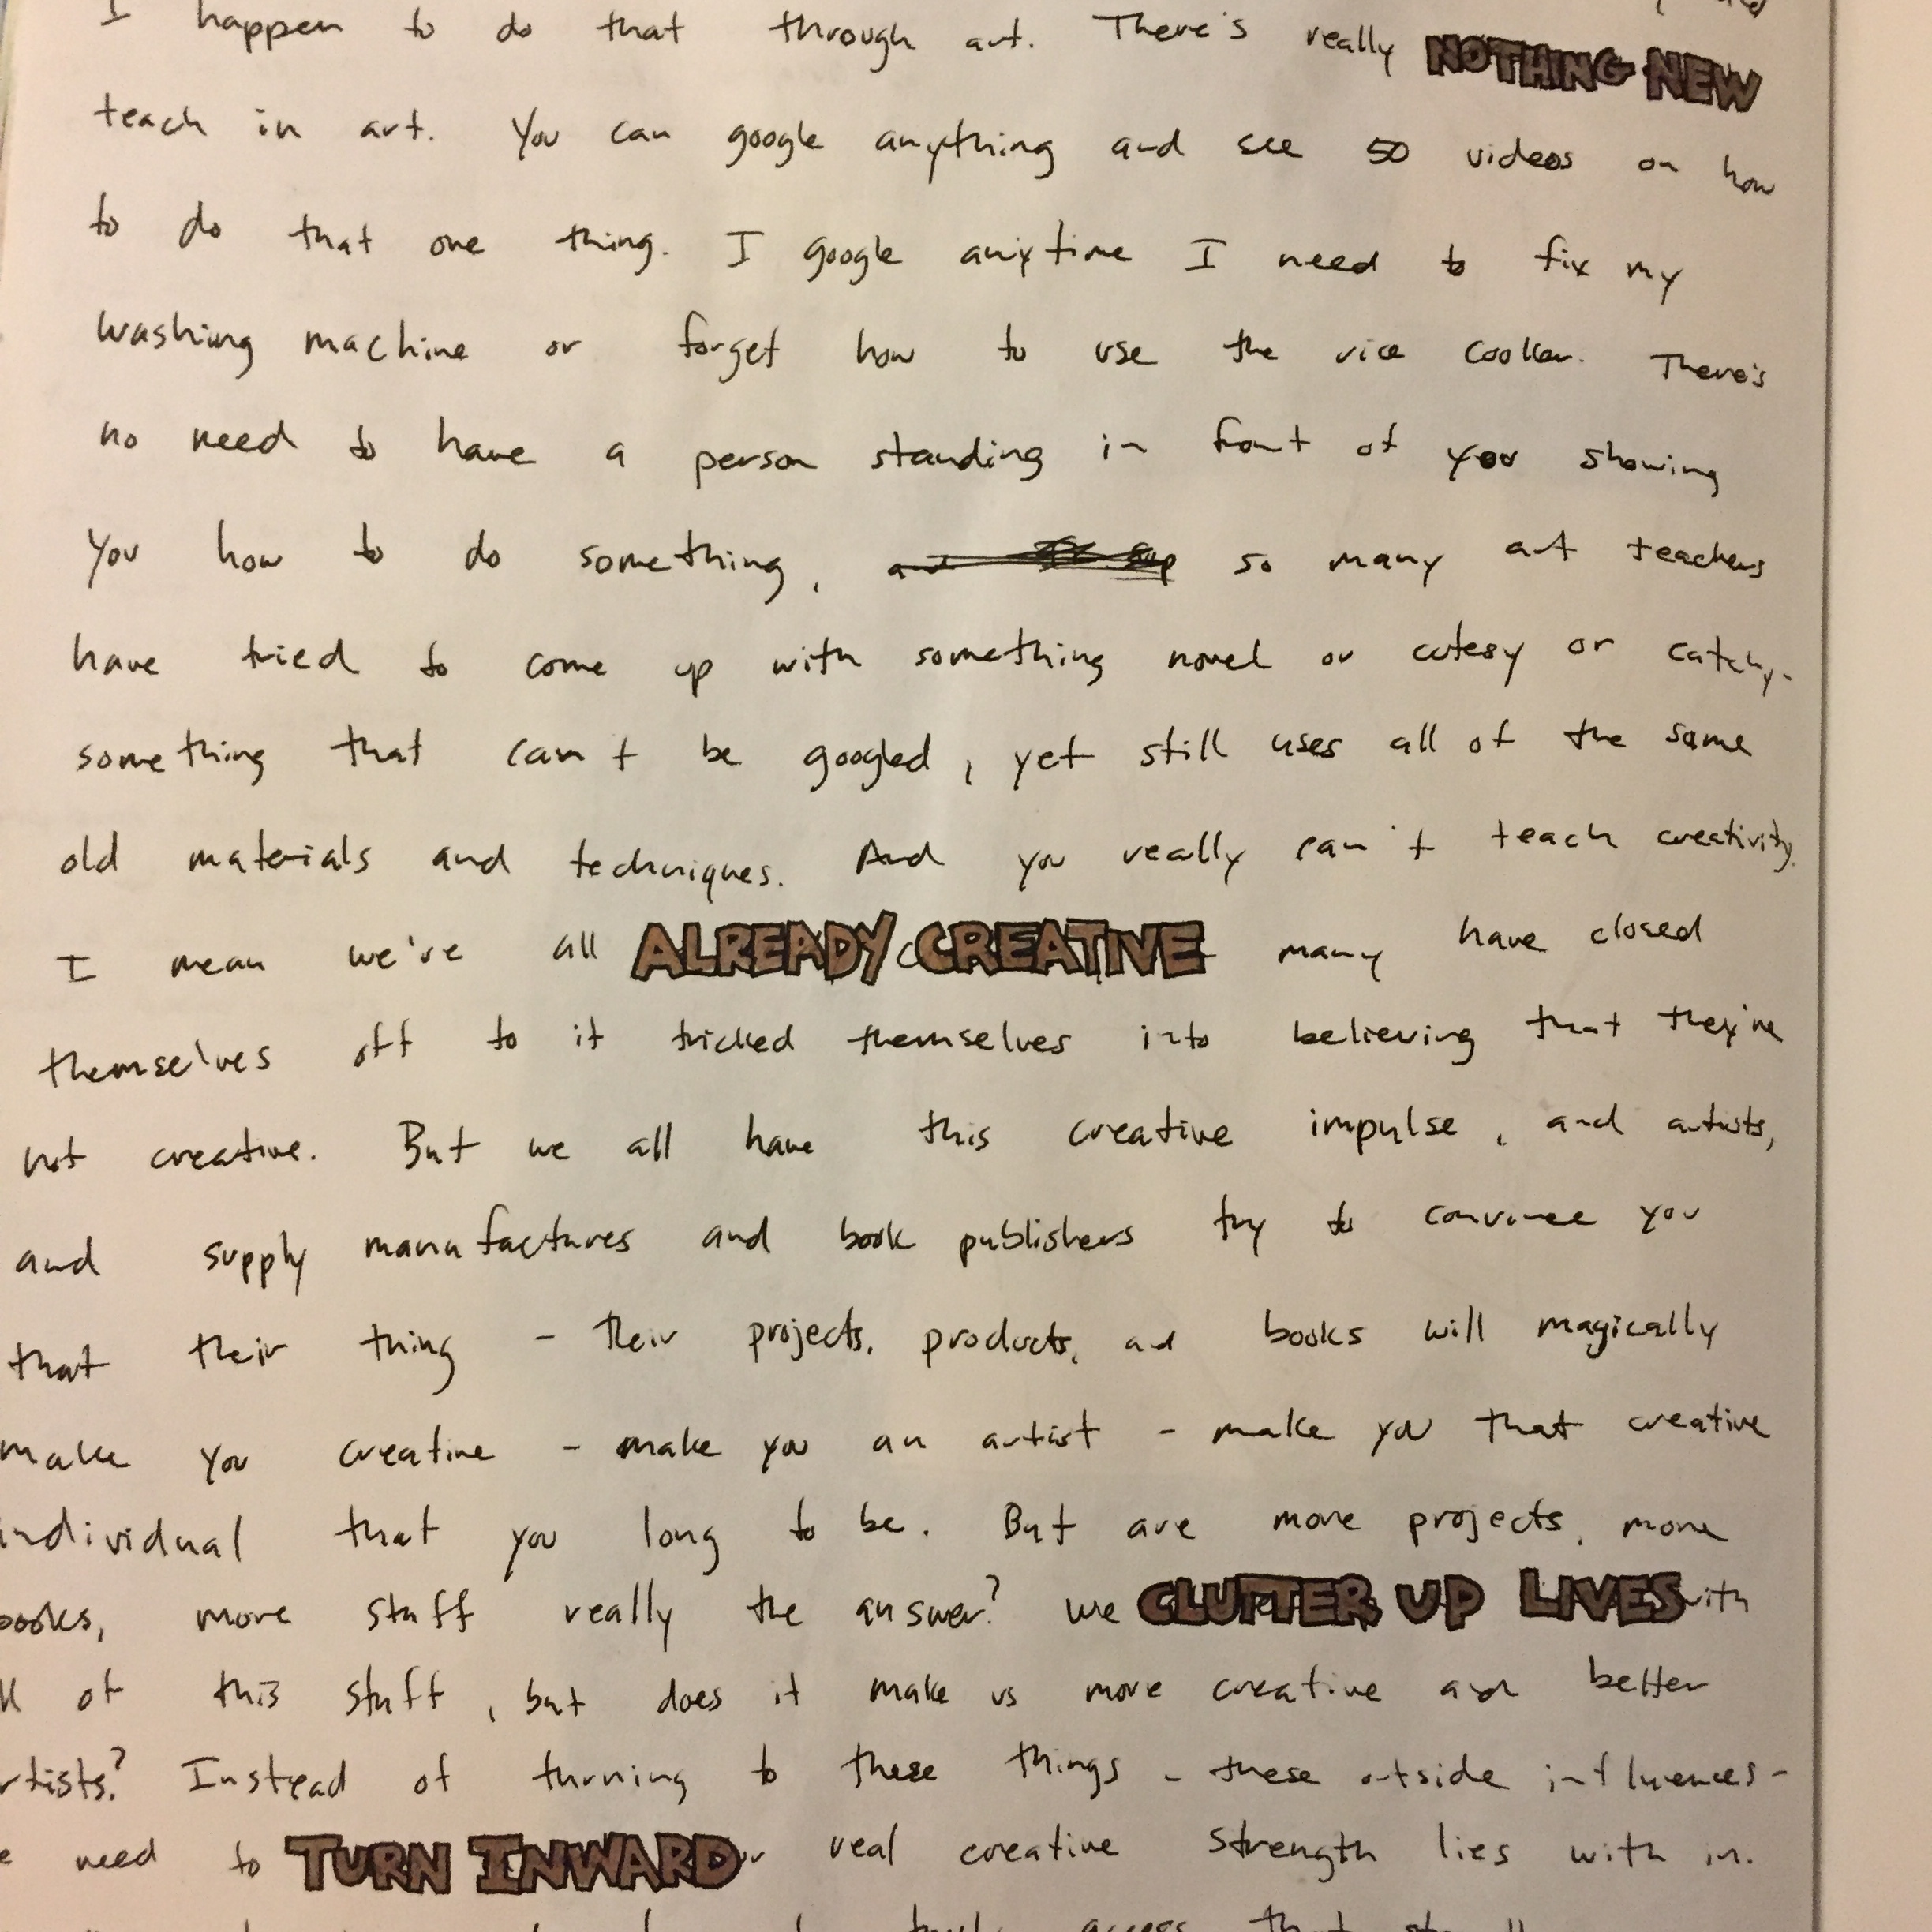 I happen to do that through art. There's really NOTHING NEW
teach in art. You can google anything and see 50 videos on how
to do that one thing. I google anytime I need to fix my
washing machine or forget how to use the rice cooker. There's
no need to have a person standing in front of you showing
you how to do something, so many art teachers
have tried to come up with something novel or cutesy or catchy-
something that can't be googled, yet still uses all of the same
old materials and techniques. And you really can't teach creativity.
I mean we're all ALREADY CREATIVE many have closed
themselves off to it tricked themselves into believing that they're
not creative. But we all have this creative impulse, and artists,
and supply manufactures and book publishers try to convince you
that their thing - their projects, products, and books will magically
make you creative - make you an artist - make you that creative
individual that you long to be. But are more projects, more
books, more stuff really the answer? We CLUTTER UP LIVES with
of this stuff, but does it make us more creative and better
artists? Instead of turning to these things - these outside influences-
need to TURN INWARD real creative strength lies with in.
access that